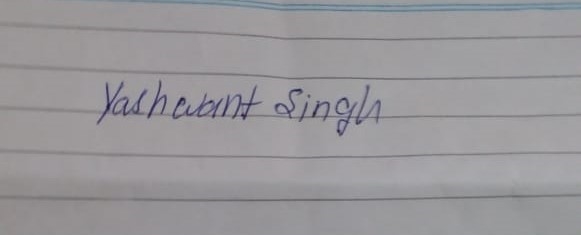 Yashwant Singh